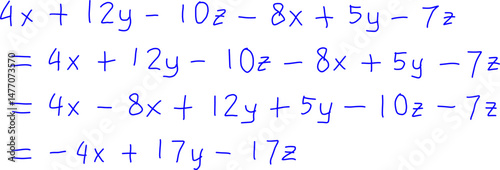 4x + 12y - 10z - 8x + 5y - 7z
= 4x + 12y - 10z - 8x + 5y - 7z
= 4x - 8x + 12y + 5y - 10z - 7z
= -4x + 17y - 17z
Adobe Stock | #1477073570